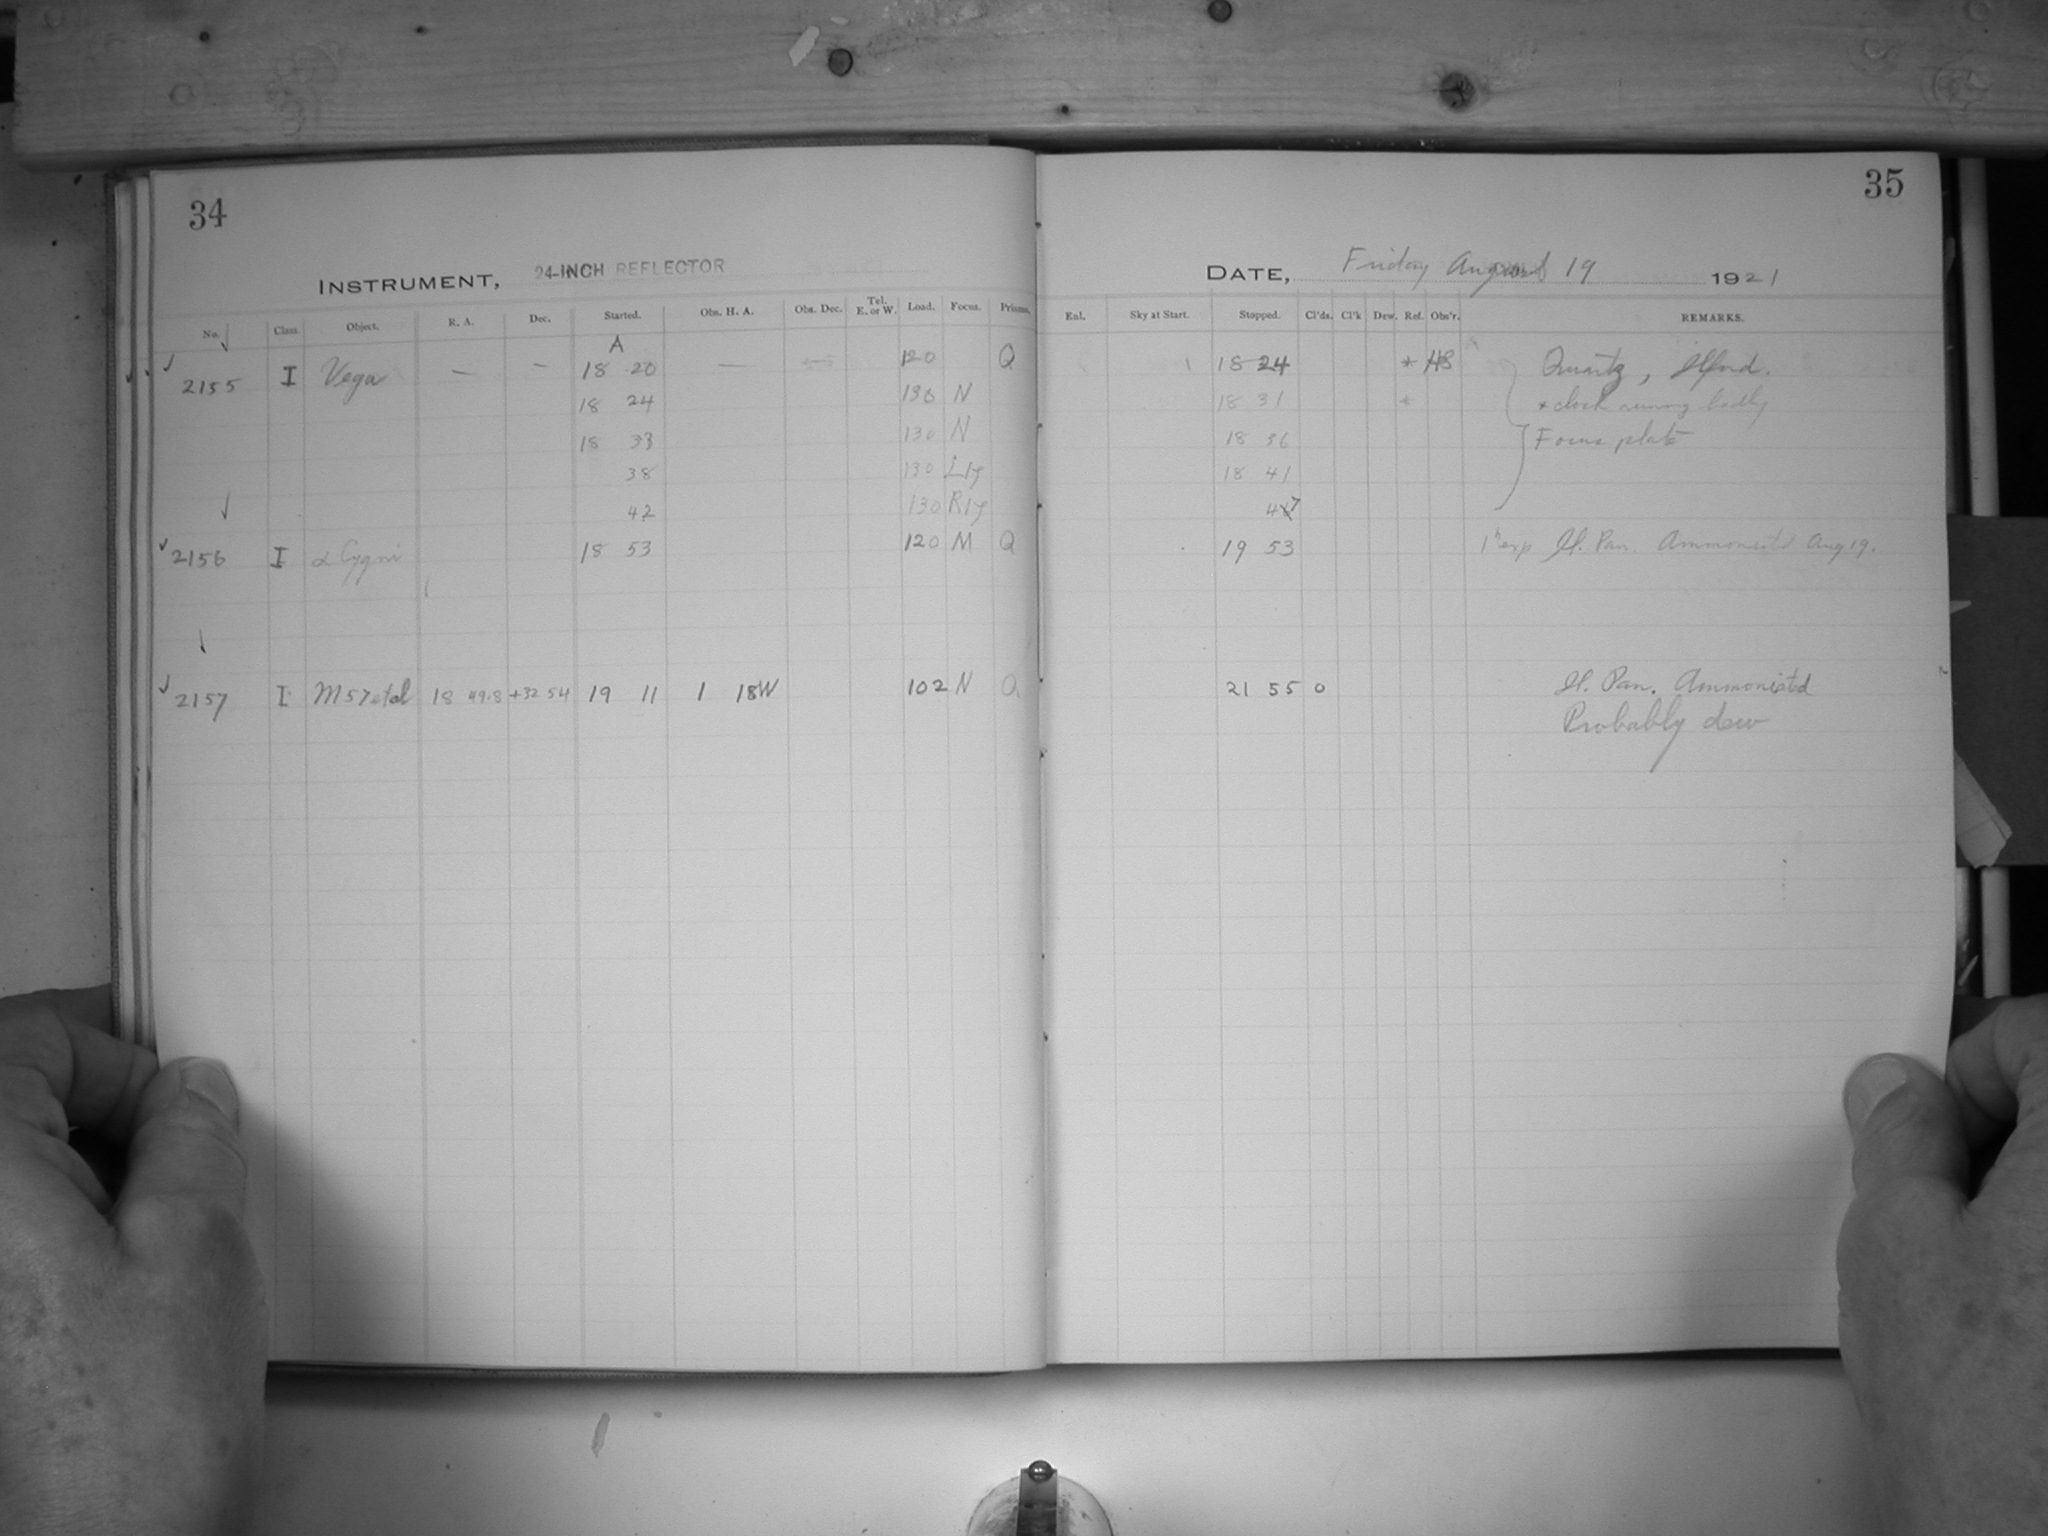 34
INSTRUMENT, 24-INCH REFLECTOR
No. Class. Object. R. A. Dec. Started. Obs. H. A. Obs. Dec. Tel. E. or W. Load. Focus. Prisms.
A
2155 I Vega — — 18 20 — 120 Q
18 24 130 N
18 33 130 N
38 130
42 130
2156 I α Cygni 18 53 120 M Q
2157 I M57 et al 18 49.8 +32 54 19 11 1 18W 102 N Q
35
DATE, Friday August 19 1921
Enl. Sky at Start. Stopped. Cl'ds. Cl'k Dew. Ref. Obs'r. REMARKS.
1 18 24 * HS Quartz, Ilford.
18 31 * * clock running badly
18 36 Focus plate
18 41
47
19 53 1h exp Il. Pan. Ammoniated Aug 19.
21 55 0 Il. Pan. Ammoniated
Probably dew